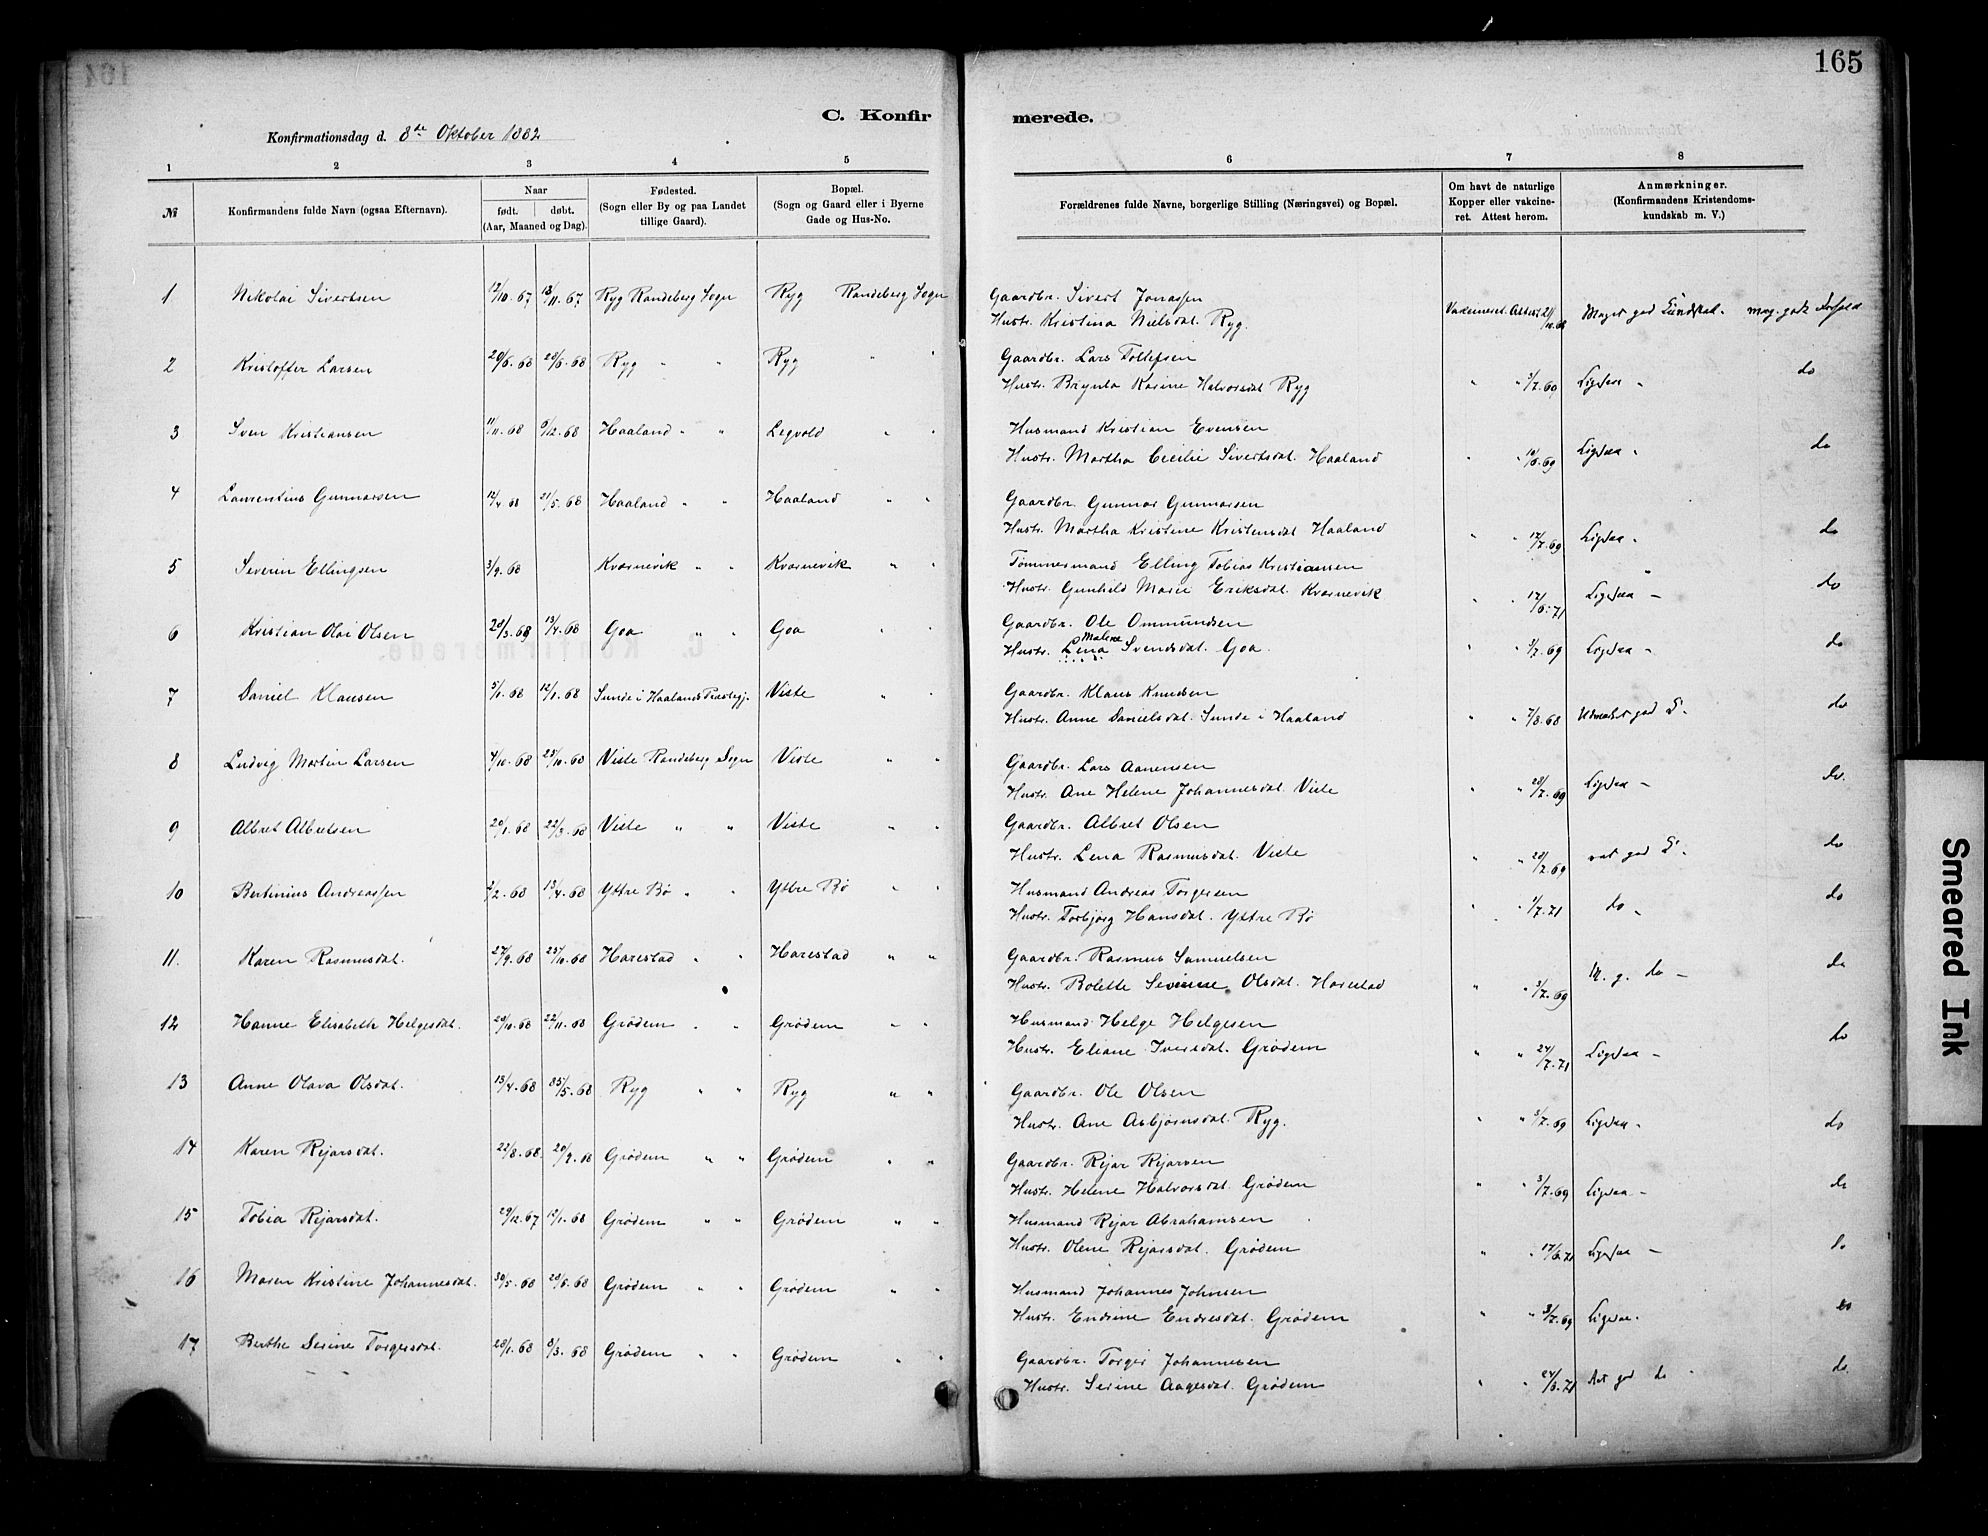 165
C. Konfirmerede.
Konfirmationsdag d. 8de Oktober 1882
1 2 3 4 5 6 7 8
№ Konfirmandens fulde Navn (ogsaa Efternavn). Naar født. døbt. (Aar, Maaned og Dag). Fødested. (Sogn eller By og paa Landet tillige Gaard). Bopæl. (Sogn og Gaard eller i Byerne Gade og Hus-No. Forældrenes fulde Navne, borgerlige Stilling (Næringsvei) og Bopæl. Om havt de naturlige Kopper eller vakcineret. Attest herom. Anmærkninger. (Konfirmandens Kristendomskundskab m. V.)
1 Nikolai Sivertsen 12/10.67 13/11.67 Ryg Randeberg Sogn Ryg Randeberg Sogn Gaardbr. Sivert Jonassen
Hustr. Kristina Nielsdat. Ryg. Vakcineret. Attest Meget god Kundskab. meg. godt Forhold
2 Kristoffer Larsen 20/6.68 28/6.68 Ryg " " Ryg " " Gaardbr. Lars Tollefsen
Hustr. Brynla Karine Halvorsdat Ryg " " 3/7.69 Ligesaa " do
3 Sven Kristiansen 11/11.68 6/12.68 Haaland " " Legvold " " Husmand Kristian Evensen
Hustr. Martha Cecilie Sivertsdat. Haaland " " 10/6.69 Ligesaa " do
4 Laurentius Gunnarsen 12/4 68 21/5.68 Haaland " " Haaland " " Gaardbr. Gunnar Gunnarsen
Hustr. Martha Kristine Kristensdat Haaland " " 17/7.69 Ligesaa " do
5 Severin Ellingsen 3/9.68 Kvernevik " " Kvernevik " " Tømmermand Elling Tobias Kristiansen
Hustr. Gunhild Marie Eriksdat. Kvernevik " " 17/6.71 Ligesaa – do
6 Kristian Olai Olsen 28/3.68 13/4.68 Goa " " Goa " " Gaardbr. Ole Ommundsen
Hustr. Lena Malene Svendsdat. Goa. " " 3/7.69 Ligesaa – do
7 Daniel Klausen 5/1.68 12/1.68 Sunde i Haalands Præstegj. Viste " " Gaardbr. Klaus Knudsen
Hustr. Anne Danielsdat. Sunde i Haaland " " 7/8.68 Udmerket god K. do
8 Ludvig Martin Larsen 4/10.68 25/10.68 Viste Randeberg Sogn Viste " " Gaardbr. Lars Aanensen
Hustr. Ane Helene Johannesdat. Viste " " 28/7.69 Ligesaa – do.
9 Albret Albretsen 20/1.68 22/3.68 Viste " " Viste " " Gaardbr. Albret Olsen
Hustr. Lena Rasmusdat. Viste " " 28/7.69 god K. do
10 Bertinius Andreassen 2/2.68 13/4.68 Yttre Bø " " Yttre Bø " " Husmand Andreas Torgersen
Hustr. Torbjørg Hansdat. Yttre Bø " " 1/7.71 do " do
11. Karen Rasmusdat. 27/9.68 25/10.68 Harestad " " Harestad " " Gaardbr. Rasmus Samuelsen
Hustr. Bolette Severine Olsdat. Harestad " " 3/7.69 M. g. do – do
12 Hanne Elisabeth Helgesdat. 20/10.68 22/11.68 Grødem " " Grødem " " Husmand Helge Helgesen
Hustr. Eliane Iversdat. Grødem " " 24/7.71 Ligesaa – do
13 Anne Olava Olsdat. 13/4.68 /5.68 Ryg " " Ryg " " Gaardbr. Ole Olsen
Hustr. Ane Asbjørnsdat. Ryg. " " 3/7.69 Ligesaa. do
14 Karen Rejarsdat. 22/8.68. 20/9.68 Grødem " " Grødem " " Gaardbr. Rejar Rejarsen
Hustr. Helene Halvorsdat. Grødem " " 3/7.69 Ligesaa – do
15 Tobia Rejarsdat. 29/12.67 12/1.68 Grødem " " Grødem " " Husmand Rejar Abrahamsen
Hustr. Olene Rejarsdat. Grødem " " 17/6.71 Ligesaa – do
16 Maren Kristine Johannesdat. 30/5.68 28/6.68 Grødem " " Grødem " " Husmand Johannes Johnsen
Hustr. Endrine Endresdat. Grødem " " 3/7.69 Ligesaa. do
17 Berthe Serine Torgersdat. 28/1.68 8/3.68 Grødem " " Grødem " " Gaardbr. Torger Johannesen
Hustr. Serine Aagesdat. Grødem " " 24/3.71 god do do.
Smeared Ink